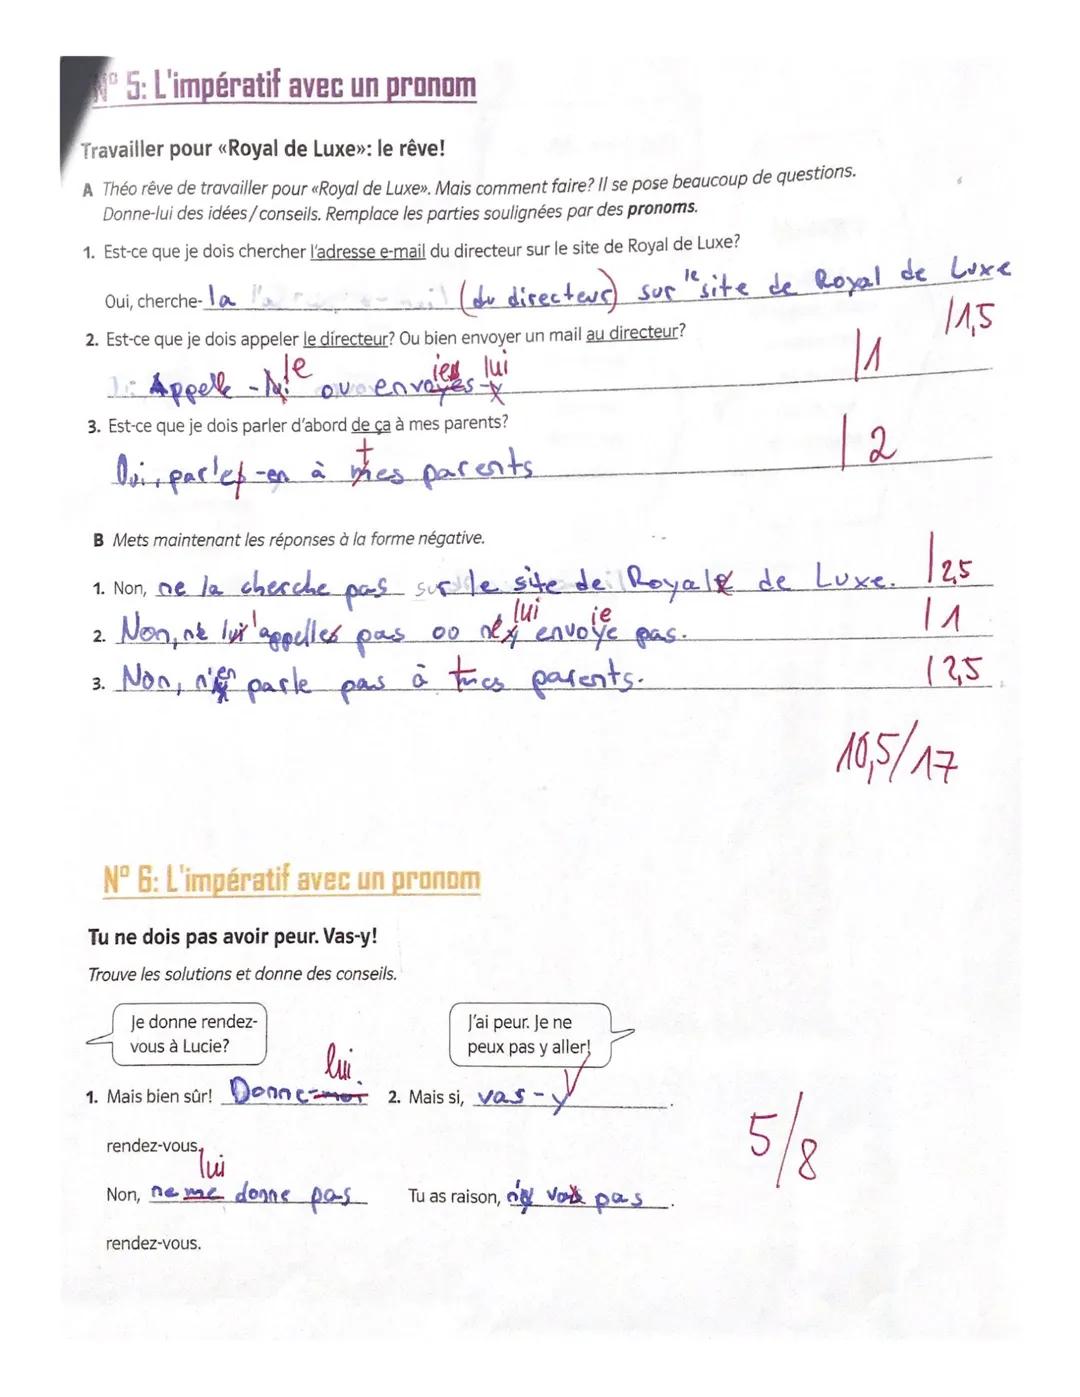 N° 5: L'impératif avec un pronom
Travailler pour «Royal de Luxe»: le rêve!
A Théo rêve de travailler pour «Royal de Luxe». Mais comment faire? Il se pose beaucoup de questions.
Donne-lui des idées/conseils. Remplace les parties soulignées par des pronoms.
1. Est-ce que je dois chercher l'adresse e-mail du directeur sur le site de Royal de Luxe?
Oui, cherche-la (du directeur) sur le site de Royal de Luxe
/1,5
2. Est-ce que je dois appeler le directeur? Ou bien envoyer un mail au directeur?
le ies lui |1
Appelle - lui ou envoyes-y
3. Est-ce que je dois parler d'abord de ça à mes parents?
t | 2
Oui, parles-en à mes parents
B Mets maintenant les réponses à la forme négative.
1. Non, ne la cherche pas sur le site de Royal de Luxe. |2,5
lui ie
2. Non, ne l'appelles pas oo envoye pas. |1
3. Non, n'en parle pas à mes parents. |2,5
10,5/17
N° 6: L'impératif avec un pronom
Tu ne dois pas avoir peur. Vas-y!
Trouve les solutions et donne des conseils.
Je donne rendez-vous à Lucie?
J'ai peur. Je ne peux pas y aller!
lui
1. Mais bien sûr! Donne-moi 2. Mais si, vas-y
rendez-vous. 5/8
lui
Non, ne me donne pas Tu as raison, n'y vas pas.
rendez-vous.